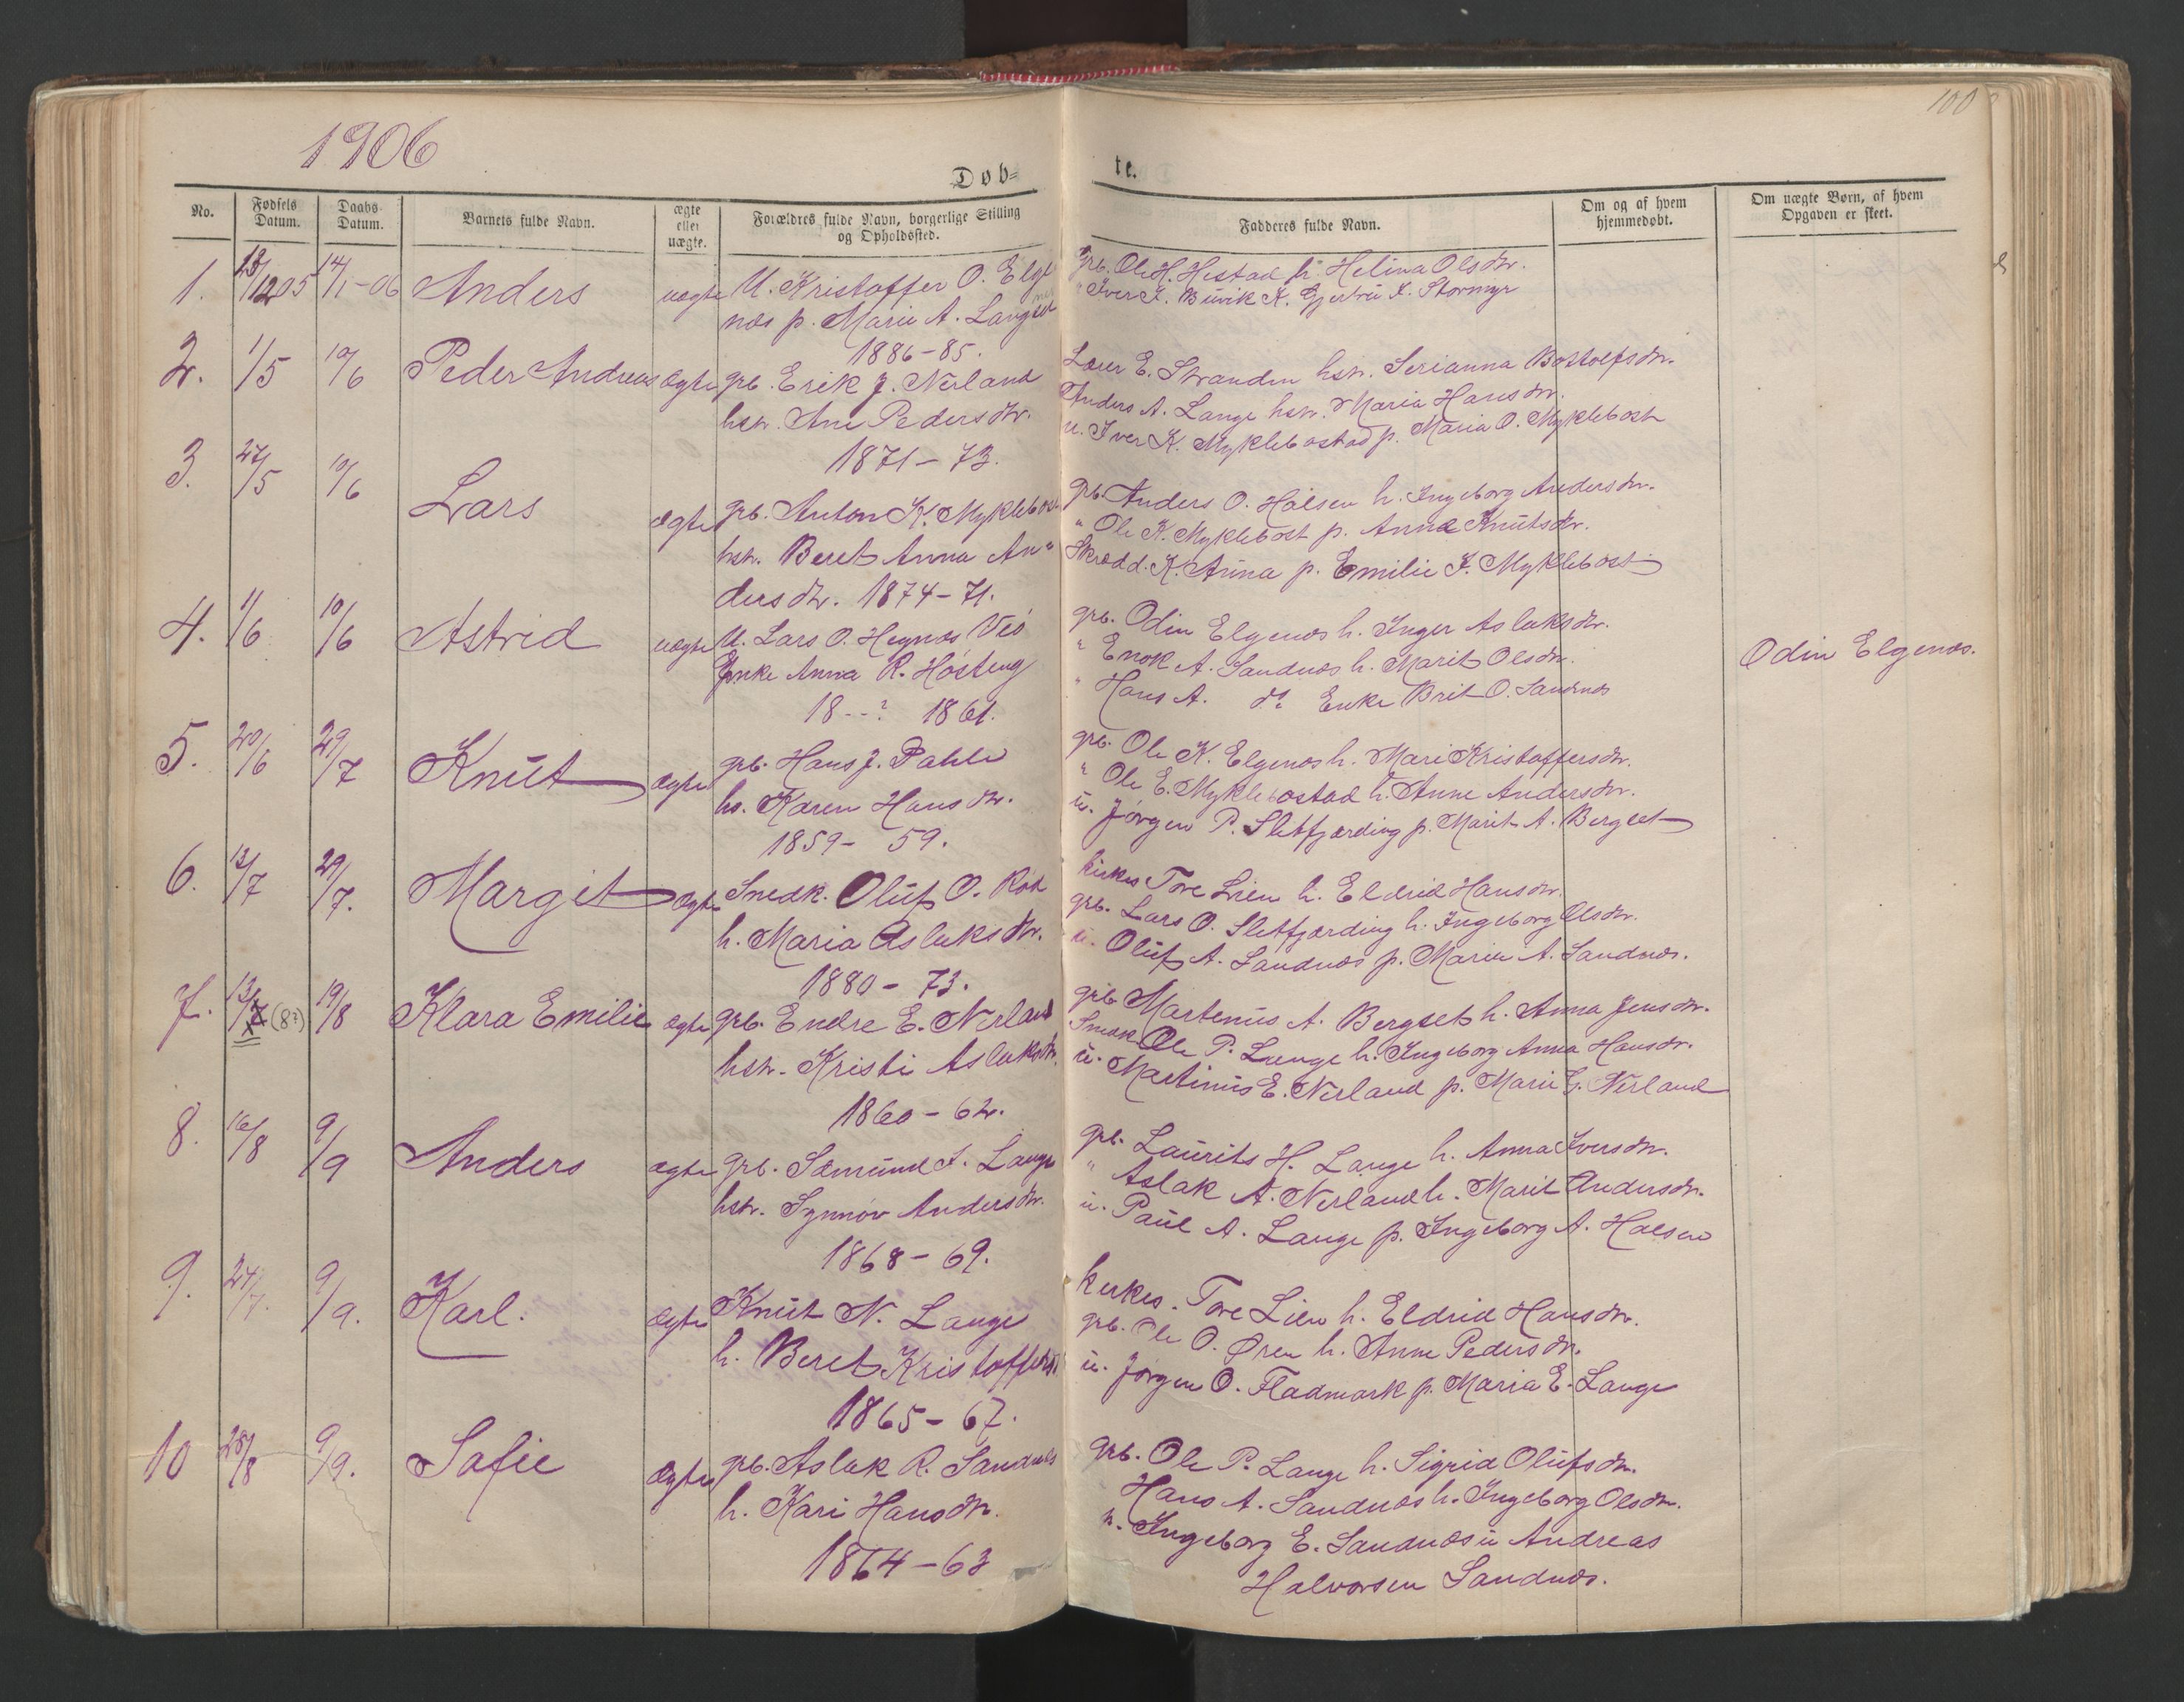 1906
100
Døb-
te.
No.
Fødsels Datum.
Daabs Datum.
Barnets fulde Navn.
ægte eller uægte.
Forældres fulde Navn, borgerlige Stilling og Opholdssted.
Fadderes fulde Navn.
Om og af hvem hjemmedøbt.
Om uægte Børn, af hvem Opgaven er skeet.
1. /12 05 14/1-06 Anders uægte U. Kristoffer O. Elge
næs p. Marie A. Langset
1886-85.
grb. Ole H. Hestad h. Helina Olsdtr.
" Iver I. Buvik K. Gjertru K. Stormyr
2. 1/5 10/6 Peder Andreas ægte grb. Erik J. Nerland
hstr. Ane Pedersdtr.
1871-73.
Lærer E. Stranden hstr. Serianna Bostolfsdtr.
Anders A. Lange hstr. Maria Hansdtr.
u. Iver K. Myklebostad p. Maria O. Myklebost
3. 27/5 10/6 Lars ægte grb. Anton K. Myklebost
hstr. Beret Anna An"
dersdtr. 1874-71.
grb. Anders O. Halsen h. Ingeborg Andersdtr.
" Ole K. Myklebost p. Anna Knutsdtr.
Skrædd. K. Auna p. Emilie I. Myklebost
4. 1/6 10/6 Astrid uægte U. Lars O. Hegnæs Veø
Enke Anna R. Høsteng
18--? 1861.
grb. Odin Elgenæs h. Inger Aslaksdtr.
" Enok A. Sandnæs h. Marit Olsdtr.
" Hans A. do Enke Brit O. Sandnæs
Odin Elgenæs.
5. 20/6 29/7 Knut ægte grb. Hans J. Dahle
hs. Karen Hansdtr.
1859- 59.
grb. Ole K. Elgenæs h. Mari Kristoffersdtr.
" Ole E. Myklebostad h. Anne Andersdtr.
u. Jørgen P. Sletfjærding p. Marit A. Bergset
6. 12/7 29/7. Margit ægte Snedk. Oluf O. Rød
h. Maria Aslaksdtr.
1880- 73.
kirkes Tore Lien h. Eldrid Hansdtr.
grb. Lars O. Sletfjærding h. Ingeborg Olsdtr.
u. Oluf A. Sandnæs p. Marie A. Sandnæs.
7. 13/7 (8?) 19/8 Klara Emilie ægte grb. Endre E. Nerland
hstr. Kristi Aslaksdtr.
1860-62.
grb. Martenus A. Bergset h. Anna Jensdtr.
Snedk Ole P. Lange h. Ingeborg Anna Hansdtr.
u. Martinus E. Nerland p. Marie E. Nerland
8. 16/8 9/9 Anders ægte grb. Sæmund A. Lange
hstr. Synnøv Andersdtr.
1868-69.
grb. Laurits H. Lange h. Anna Iversdtr.
" Aslak A. Nerland h. Marit Andersdtr.
u. Paul A. Lange p. Ingeborg A. Halsen
9. 24/7. 9/9. Karl. ægte Knut N. Lange
h. Beret Kristoffersdtr
1865-67.
kirkes. Tore Lien h. Eldrid Hansdtr.
grb. Ole O. Øren h. Anne Pedersdtr.
u. Jørgen O. Fladmark p. Maria E. Lange
10 28/8 9/9. Sofie ægte grb. Aslak R. Sandnæs
h. Kari Hansdtr.
1864-63
grb. Ole P. Lange h. Sigrid Olufsdtr.
Hans A. Sandnæs h. Ingeborg Olsdtr.
p. Ingeborg E. Sandnæs u Andreas
Halvorsen Sandnæs.